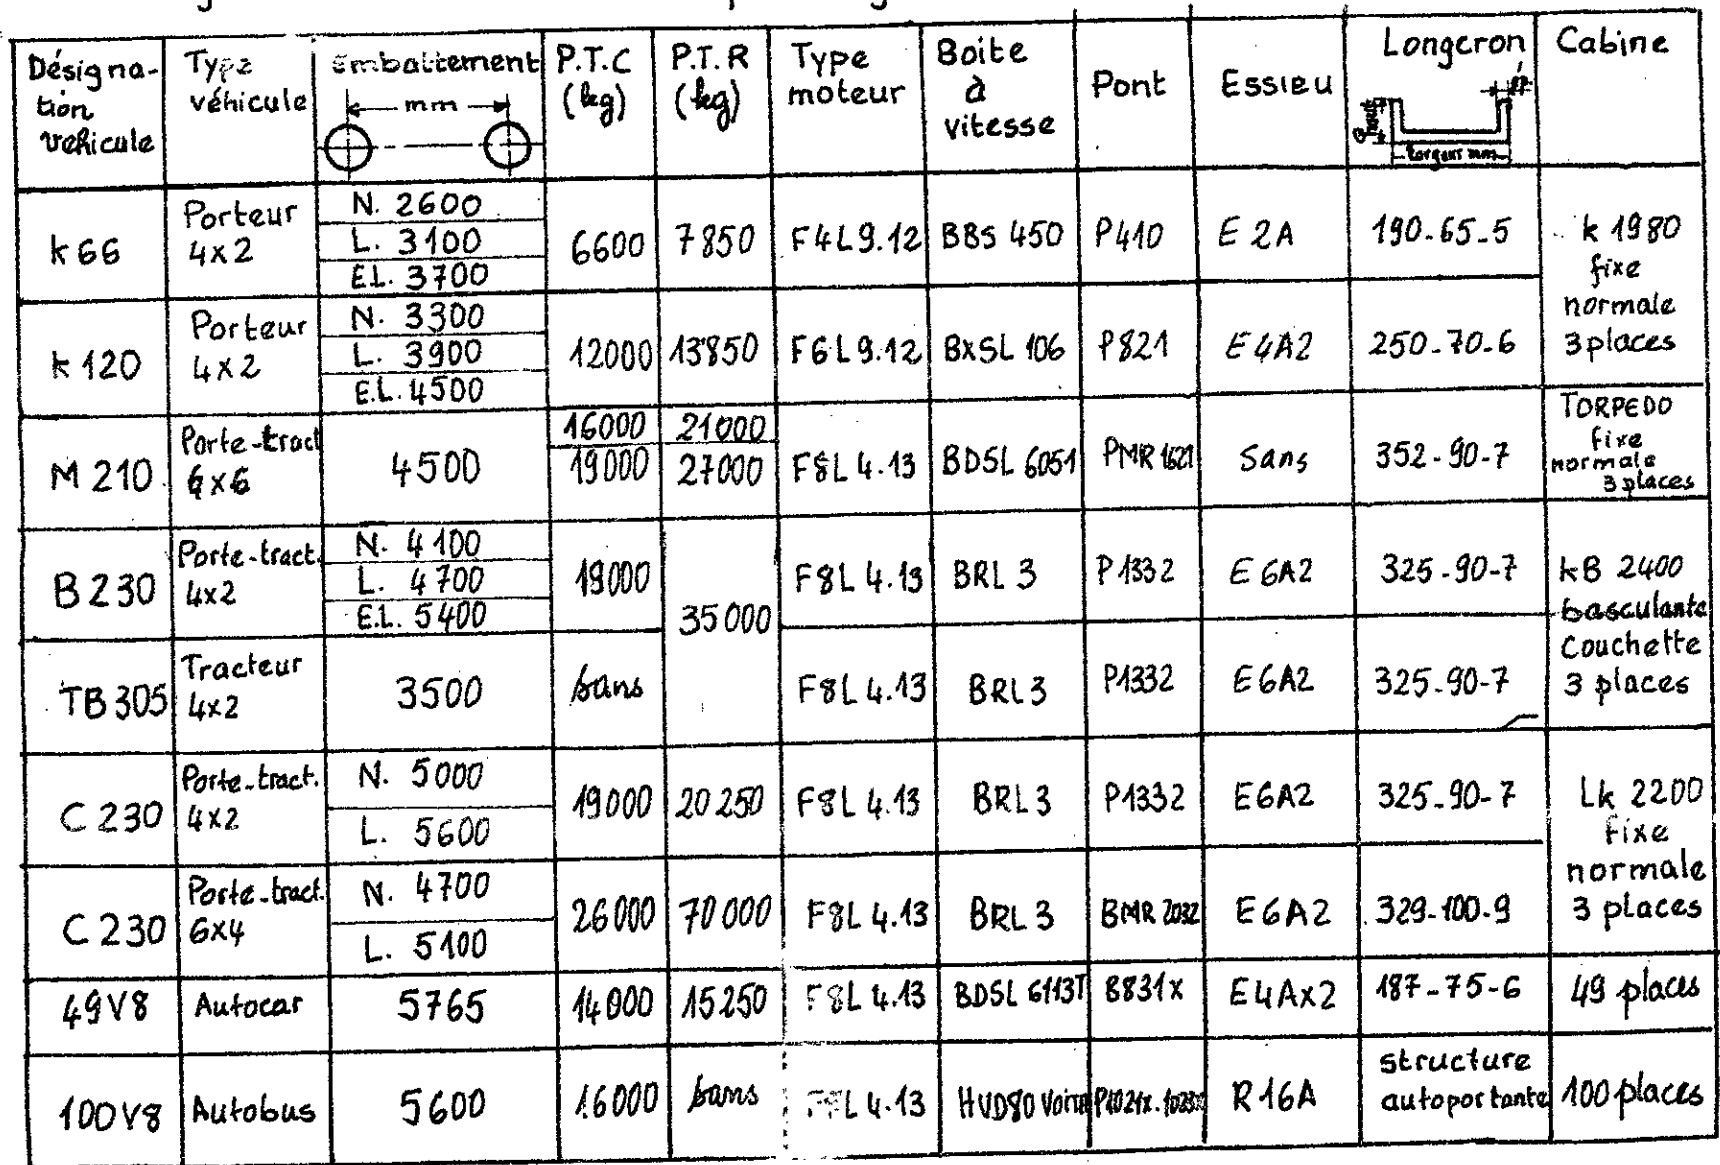 Désigna-
tion
vehicule
Type
véhicule
Embattement
mm
P.T.C
(kg)
P.T.R
(kg)
Type
moteur
Boite
à
vitesse
Pont
Essieu
Longeron
largeur mm
Cabine
k 66
Porteur
4x2
N. 2600
L. 3100
EL. 3700
6600
7850
F4L9.12
BBS 450
P410
E 2A
190-65-5
k 1980
fixe
normale
3places
k 120
Porteur
4x2
N. 3300
L. 3900
E.L. 4500
12000
13850
F6L9.12
BXSL 106
P821
E4A2
250-70-6
M 210
Porte-tract
6x6
4500
16000
19000
21000
27000
F8L 4.13
BDSL 6051
PMR 1621
Sans
352-90-7
TORPEDO
fixe
normale
3 places
B 230
Porte-tract.
4x2
N. 4100
L. 4700
E.L. 5400
19000
35000
F8L 4.13
BRL 3
P1332
E6A2
325-90-7
kB 2400
basculante
Couchette
3 places
TB 305
Tracteur
4x2
3500
Sans
F8L 4.13
BRL3
P1332
E6A2
325-90-7
C 230
Porte-tract.
4x2
N. 5000
L. 5600
19000
20250
F8L 4.13
BRL3
P1332
E6A2
325-90-7
Lk 2200
fixe
normale
3 places
C 230
Porte-tract.
6x4
N. 4700
L. 5100
26000
70000
F8L 4.13
BRL 3
BMR 2032
E6A2
329-100-9
49V8
Autocar
5765
14000
15250
F8L 4.13
BDSL 6113T
B831x
E4Ax2
187-75-6
49 places
100V8
Autobus
5600
16000
Sans
F8L 4.13
HVD80
R16A
structure
autoportante
100 places